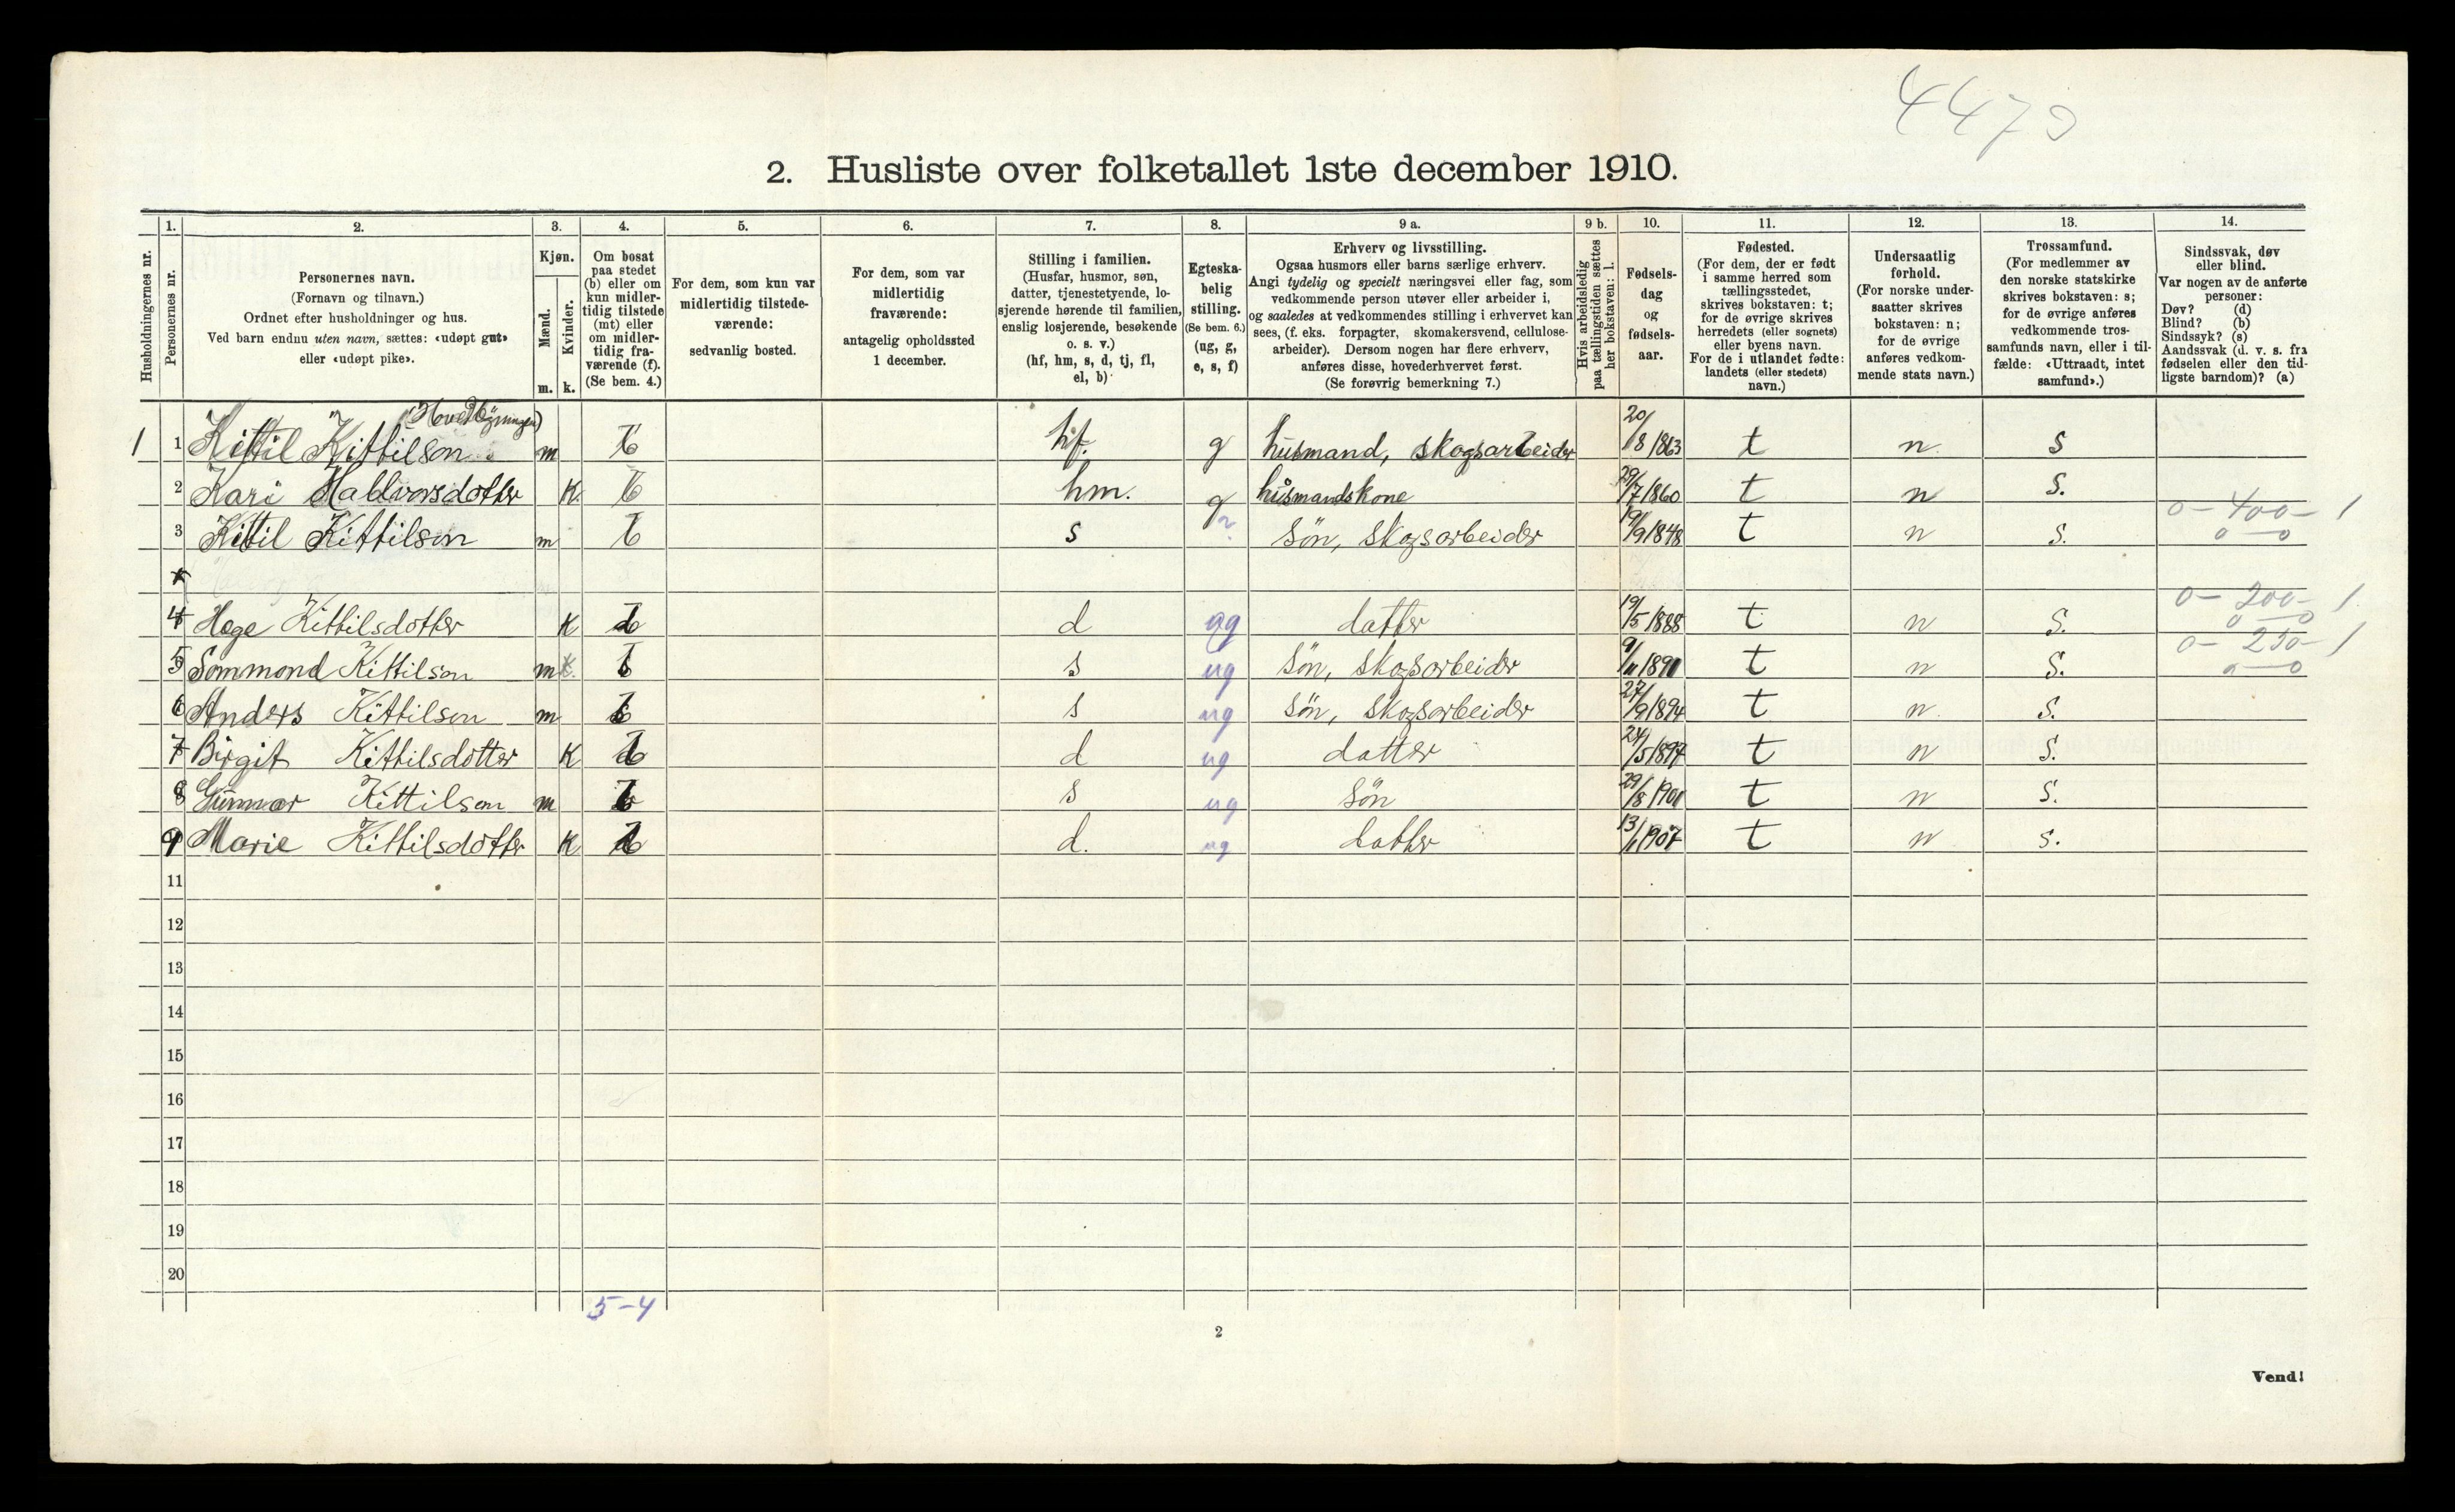 4470
2. Husliste over folketallet 1ste december 1910.
Husholdningernes nr.
1. Personernes nr.
2. Personernes navn.
(Fornavn og tilnavn.)
Ordnet efter husholdninger og hus.
Ved barn endnu uten navn, sættes: «udøpt gut»
eller «udøpt pike».
3. Kjøn.
Mænd. m.
Kvinder. k.
4. Om bosat
paa stedet
(b) eller om
kun midler-
tidig tilstede
(mt) eller
om midler-
tidig fra-
værende (f).
(Se bem. 4.)
5. For dem, som kun var
midlertidig tilstede-
værende:
sedvanlig bosted.
6. For dem, som var
midlertidig
fraværende:
antagelig opholdssted
1 december.
7. Stilling i familien.
(Husfar, husmor, søn,
datter, tjenestetyende, lo-
sjerende hørende til familien,
enslig losjerende, besøkende
o. s. v.)
(hf, hm, s, d, tj, fl,
el, b)
8. Egteska-
belig
stilling.
(Se bem. 6.)
(ug, g,
e, s, f)
9 a. Erhverv og livsstilling.
Ogsaa husmors eller barns særlige erhverv.
Angi tydelig og specielt næringsvei eller fag, som
vedkommende person utøver eller arbeider i,
og saaledes at vedkommendes stilling i erhvervet kan
sees, (f. eks. forpagter, skomakersvend, cellulose-
arbeider). Dersom nogen har flere erhverv,
anføres disse, hovederhvervet først.
(Se forøvrig bemerkning 7.)
9 b. Hvis arbeidsledig
paa tællingstiden sættes
her bokstaven: l.
10. Fødsels-
dag
og
fødsels-
aar.
11. Fødested.
(For dem, der er født
i samme herred som
tællingsstedet,
skrives bokstaven: t;
for de øvrige skrives
herredets (eller sognets)
eller byens navn.
For de i utlandet fødte:
landets (eller stedets)
navn.)
12. Undersaatlig
forhold.
(For norske under-
saatter skrives
bokstaven: n;
for de øvrige
anføres vedkom-
mende stats navn.)
13. Trossamfund.
(For medlemmer av
den norske statskirke
skrives bokstaven: s;
for de øvrige anføres
vedkommende tros-
samfunds navn, eller i til-
fælde: «Uttraadt, intet
samfund».)
14. Sindssvak, døv
eller blind.
Var nogen av de anførte
personer:
Døv? (d)
Blind? (b)
Sindssyk? (s)
Aandssvak (d. v. s. fra
fødselen eller den tid-
ligste barndom)? (a)
1 1 Kittil Kittilson m b hf. g husmand, skogsarbeider 20/8 1863 t n. s
2 Kari Halvorsdotter K b hm. g husmandskone 29/7 1860 t n s.
3 Kittil Kittilson m b s søn, skogsarbeider t n s. 0 - 400 - 1
0 - 0
4 Hæge Kittilsdotter K b d ug datter 19/5 1888 t n s. 0 - 200 - 1
0 - 0
5 Sommond Kittilson m b s ug søn, skogsarbeider t n s. 0 - 250 - 1
0 - 0
6 Anders Kittilson m b s ug søn, skogsarbeider 27/9 1894 t n. s.
7 Birgit Kittilsdotter K b d ug datter 24/5 1897 t n s.
8 Gunnar Kittilson m b s ug søn 29/8 1901 t n s.
9 Marie Kittilsdotter K b d. ug datter 13/1 1907 t n s.
11
12
13
14
15
16
17
18
19
20
5-4
2
Vend!